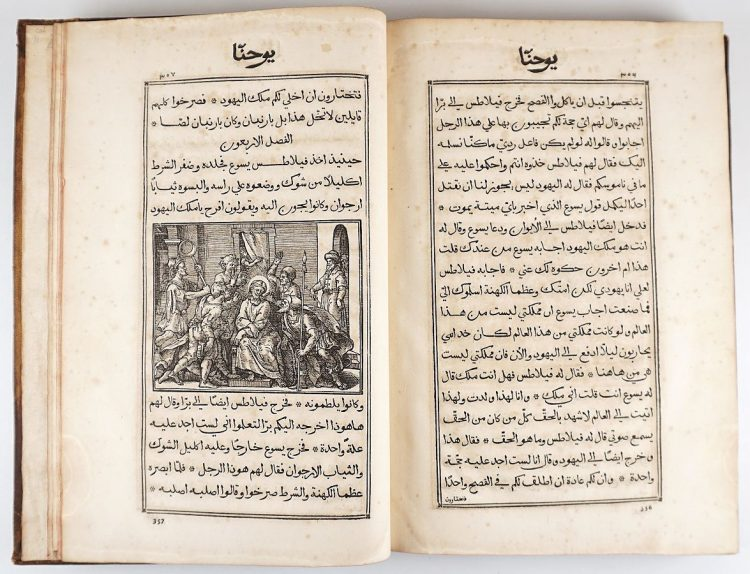 يوحنّا
٣٥٦
يتنجسوا قبل ان ياكلوا الفصح فخرج فيلاطس الى برّا
اليهم وقال لهم اي حجة لكم تجيبون بها على هذا الرجل
اجابوا وقالوا له لو لم يكن فاعل ردي ماكنّا نسلمه
اليك فقال لهم فيلاطس خذوه انتم واحكموا عليه على
ما في ناموسكم فقال له اليهود ليس يجوز لنا ان نقتل
احدًا ليكمل قول يسوع الذي اخبر باي ميتة يموت *
فدخل ايضًا فيلاطس الى الأيوان ودعا يسوع وقال له
انت هو ملك اليهود اجابه يسوع من عندك قلت
هذا ام اخرون حكوه لك عني * فاجابه فيلاطس
لعلي انا يهودي لكن امتك وعظما آلكهنة اسلموك اليّ
فما صنعت اجاب يسوع ان مملكتي ليست من هذا
العالم ولو كانت مملكتي من هذا العالم لكان خدامي
يحاربون ليلا ادفع الى اليهود والآن فان مملكتي ليست
هي من هاهنا * فقال له فيلاطس فهل انت ملك قال
له يسوع انت قلت اني ملك * وانا لهذا ولدت ولهذا
اتيت الى العالم لاشهد بالحقّ كلّ من كان من الحقّ
يسمع صوتي قال له فيلاطس وما هو الحقّ * فقال هذا
وخرج ايضًا الى اليهود وقال انا لست اجد عليه حجّة
واحدة * وان لكم عادة ان اطلق لكم في الفصح واحدًا
فتختارون
356
يوحنّا
٣٥٧
فتختارون ان اخلي لكم ملك اليهود * فصرخوا كلهم
قايلين لا تخل هذا بل بارنبان وكان بارنبان لصًا *
الفصل الاربعون
حينيذ اخذ فيلاطس يسوع فجلده وضفر الشرط
اكليلًا من شوك ووضعوه على راسه والبسوه ثيابًا
ارجوان وكانوا يجون اليه ويقولون افرح يا ملك اليهود
وكانوا يلطمونه * فخرج فيلاطس ايضًا الى برّا وقال لهم
هاهوذا اخرجه اليكم برّا لتعلموا انّي لست اجد عليه
علّة واحدة * فخرج يسوع خارجًا وعليه اكليل الشوك
والثياب الارجوان فقال لهم هوذا الرجل * فلمّا ابصره
عظمآ آلكهنة والشرط صرخوا وقالوا اصلبه اصلبه *
357